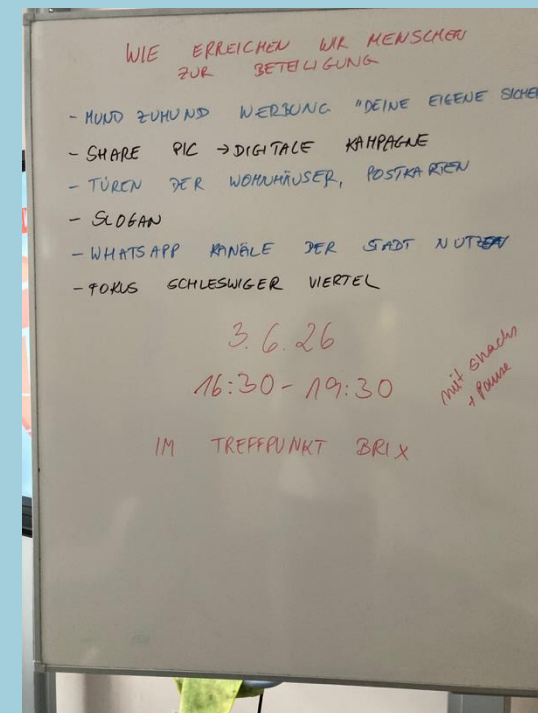 WIE ERREICHEN WIR MENSCHEN
ZUR BETEILIGUNG
- MUND ZU MUND WERBUNG "DEINE EIGENE SICHE
- SHARE PIC → DIGITALE KAMPAGNE
- TÜREN DER WOHNHÄUSER, POSTKARTEN
- SLOGAN
- WHATSAPP KANÄLE DER STADT NUTZEN
- FOKUS SCHLESWIGER VIERTEL
3.6.26
16:30 - 19:30
mit snacks
+ Pause
IM TREFFPUNKT BRIX